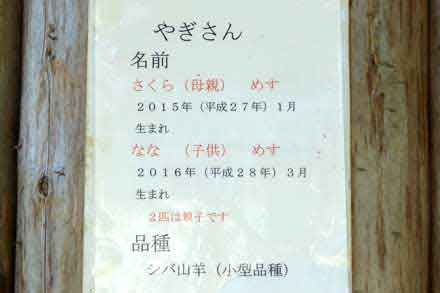 やぎさん
名前
さくら（母親）　めす
２０１５年（平成２７年）１月
生まれ
なな　（子供）　めす
２０１６年（平成２８年）３月
生まれ
２匹は親子です
品種
シバ山羊（小型品種）